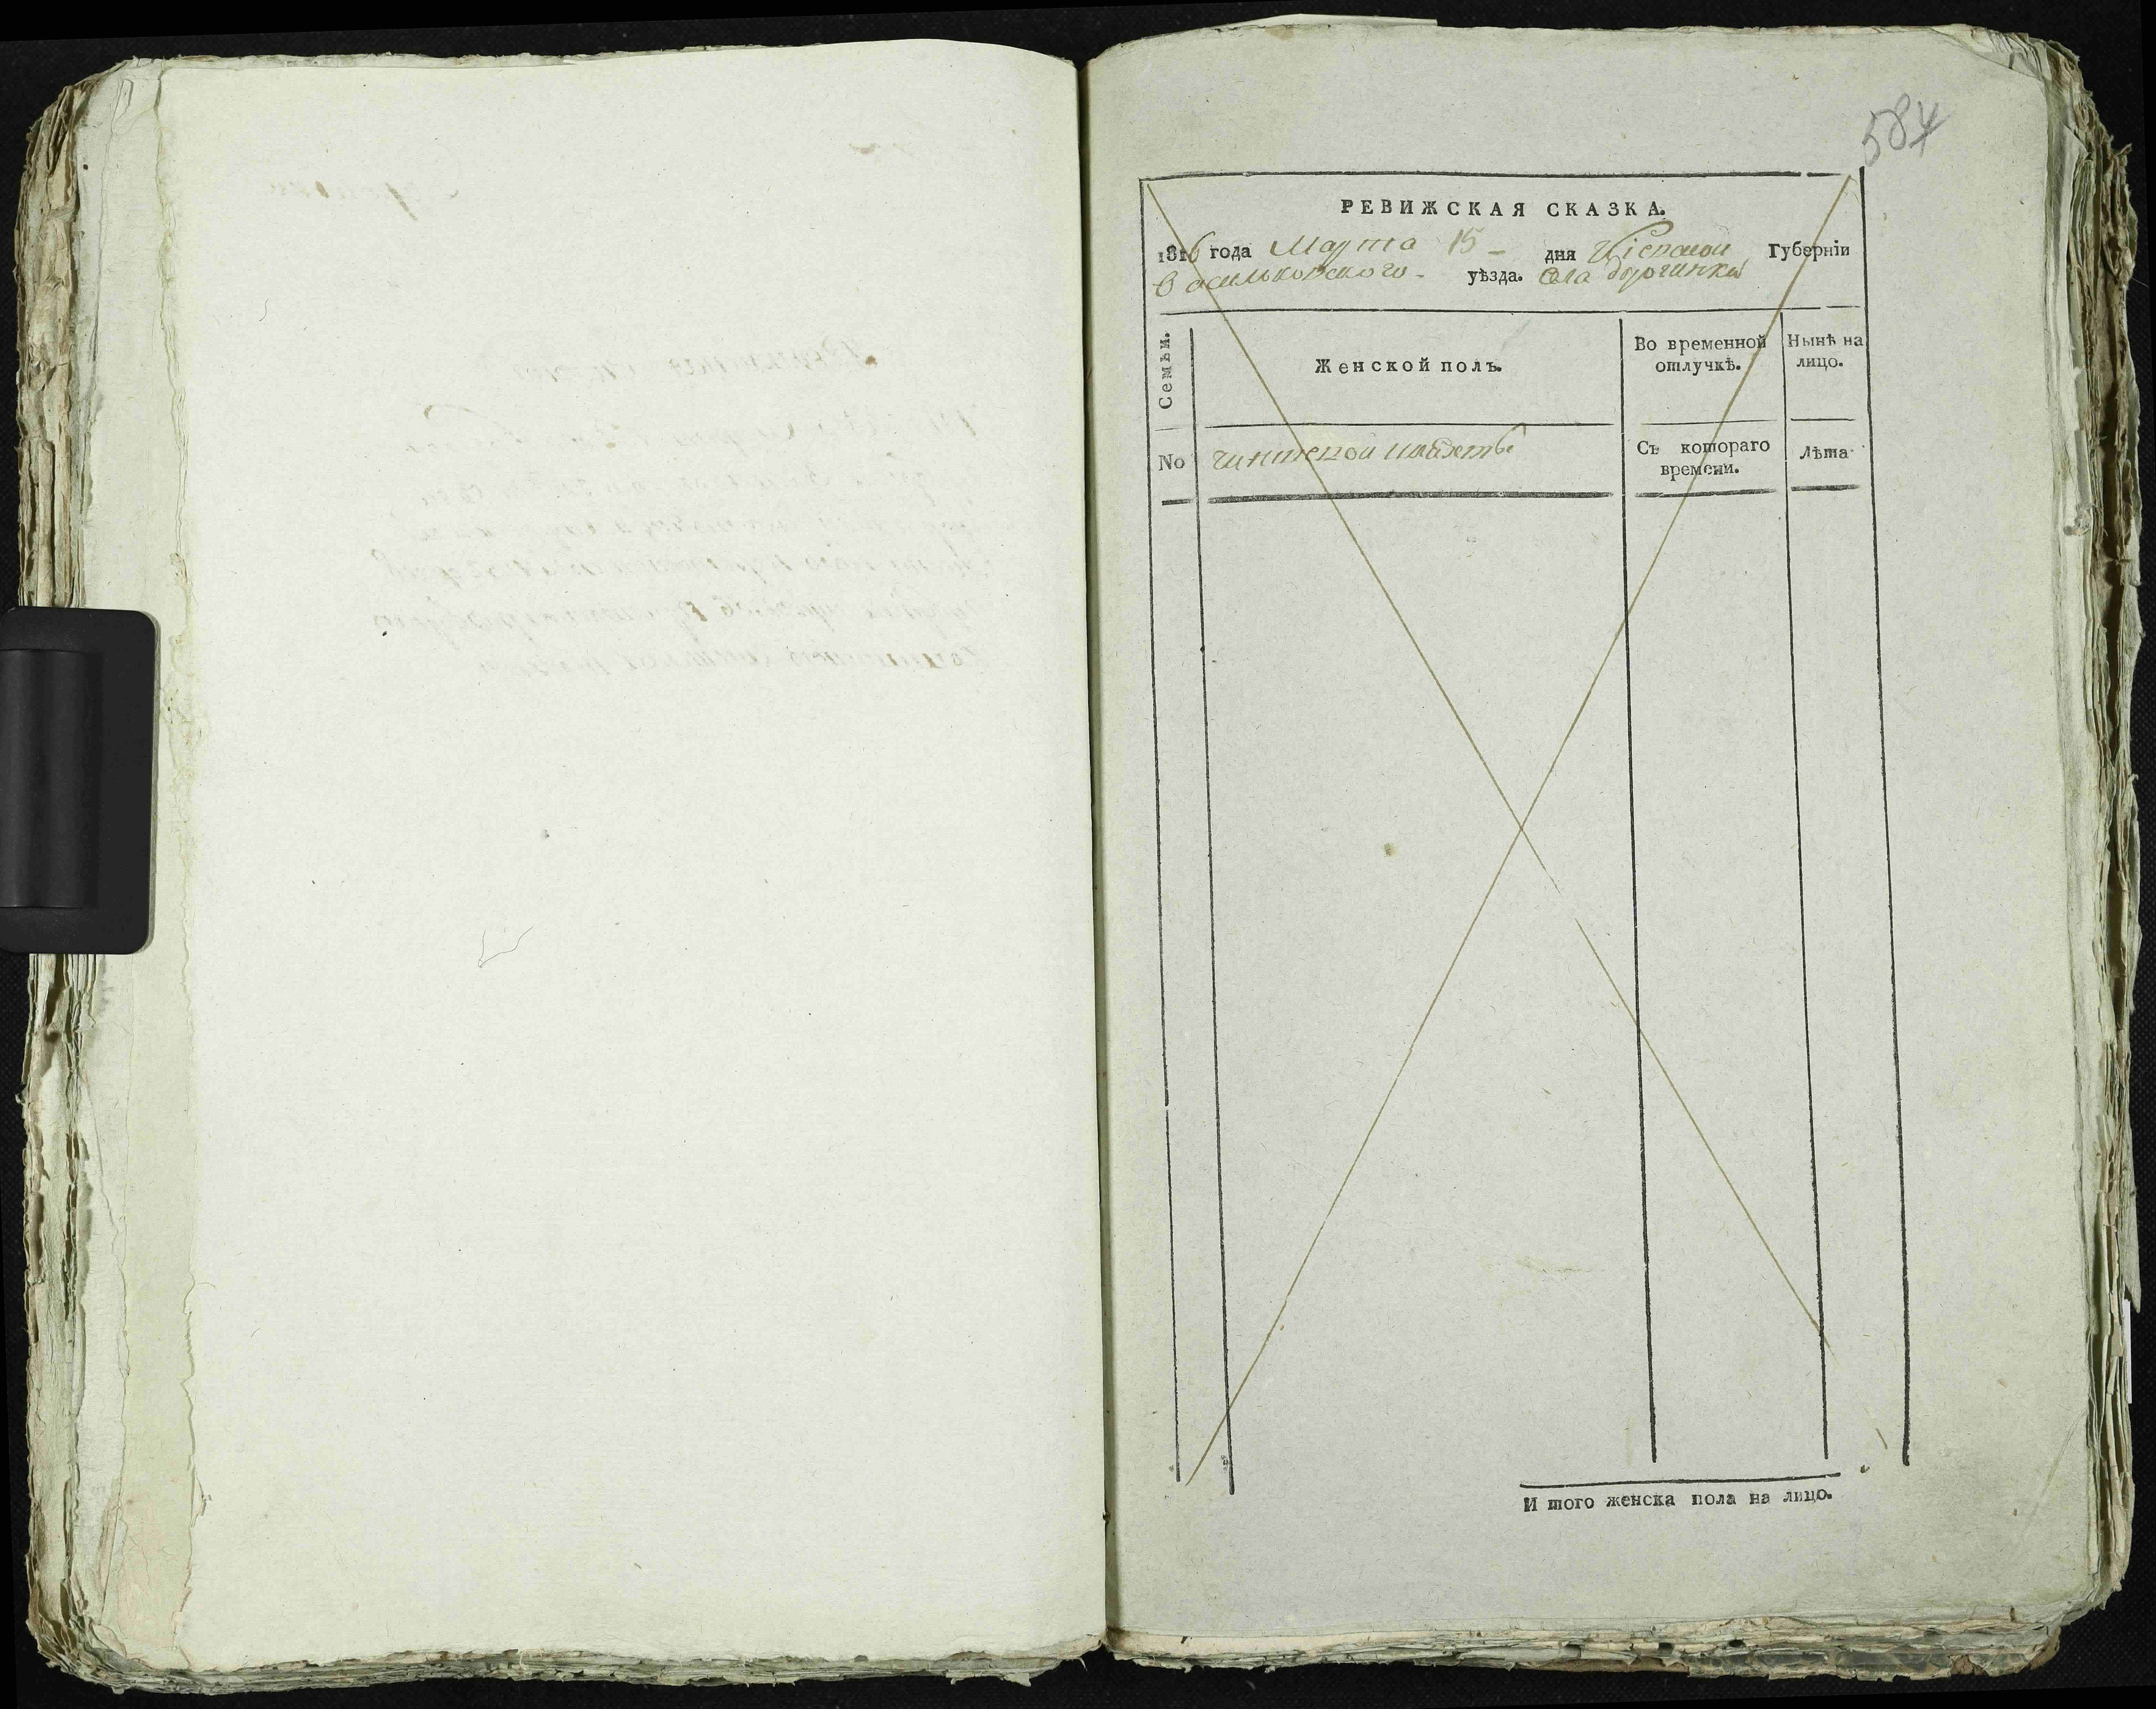 584
РЕВИЖСКАЯ СКАЗКА.
1816 года Марта 15 - дня Кіевской Губерніи
Васильковского уѣзда. Села
Семьи.
Женской полъ.
Во временной отлучкѣ.
Нынѣ на лицо.
No
чиншевой шляхты
Съ котораго времени.
Лѣта
И того женска пола на лицо.